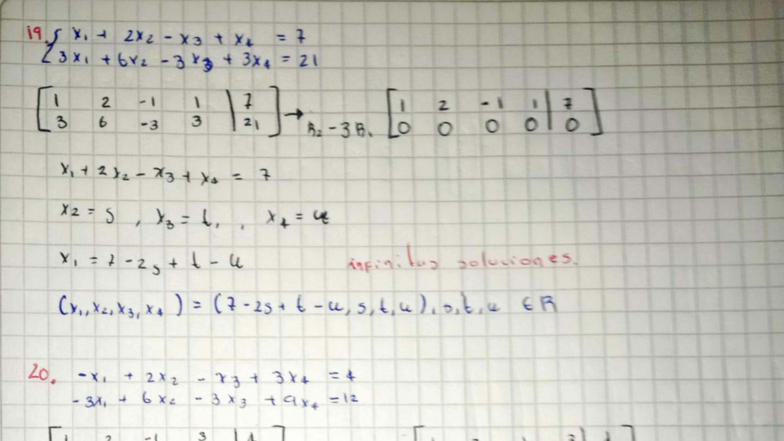 19. { x₁ + 2x₂ - x₃ + x₄ = 7
3x₁ + 6x₂ - 3x₃ + 3x₄ = 21
[1 2 -1 1 | 7] → R₂-3R₁ [1 2 -1 1 | 7]
[3 6 -3 3 | 21] [0 0 0 0 | 0]
x₁ + 2x₂ - x₃ + x₄ = 7
x₂ = s , x₃ = t, , x₄ = u
x₁ = 7 - 2s + t - u infinitas soluciones.
(x₁, x₂, x₃, x₄) = (7 - 2s + t - u, s, t, u), s, t, u ∈ R
20. -x₁ + 2x₂ - x₃ + 3x₄ = 4
-3x₁ + 6x₂ - 3x₃ + 9x₄ = 12